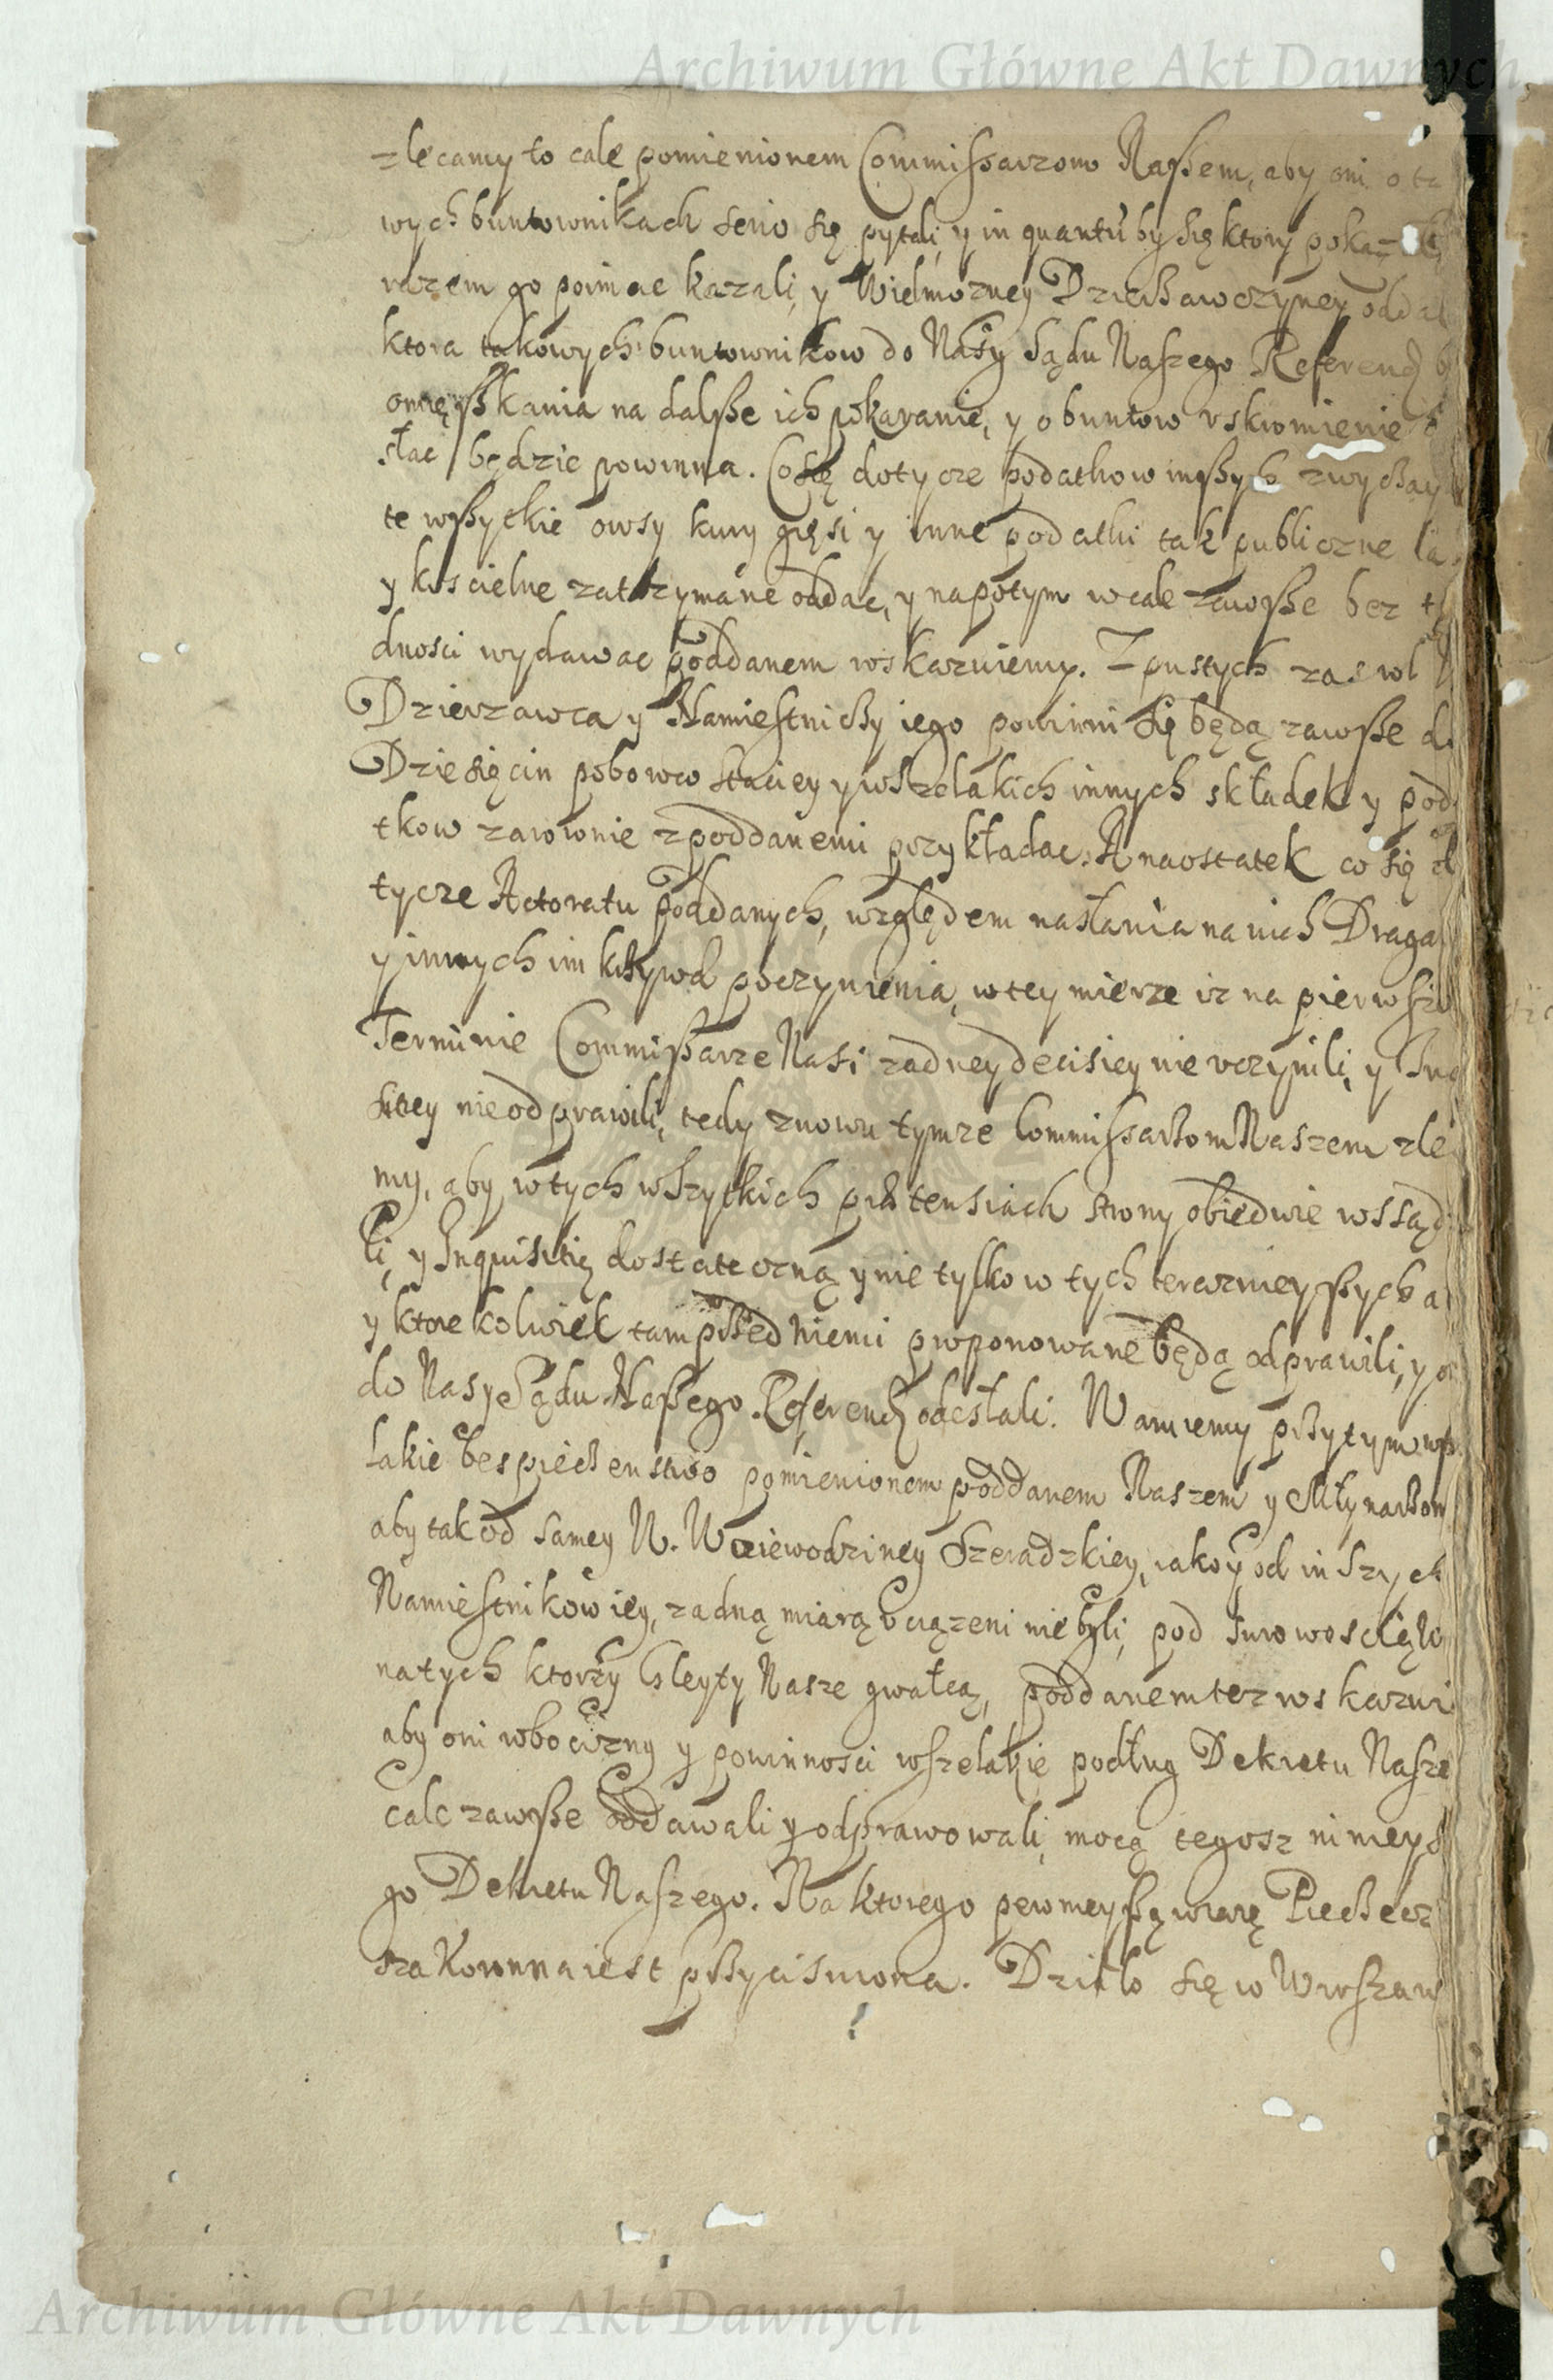 Archiwum Główne Akt Dawnych
zlecamy to cale pomienionem Commissarzom Naszem, aby oni o ta
wych buntownikach serio się pytali, y in quantu by się ktory pokazał
razem go poimac kazali, y Wielmozney Dzierzawczyney oddal
ktora takowych buntownikow do Nas y Sądu Naszego Referend b
omięszkania na dalsze ich pokaranie, y o buntow uskromienie o
słac będzie powinna. Co się dotycze podatkow inszych zwyczay
te wszytkie owsy kury gęsi y inne podatki tak publiczne ia
y koscielne zatrzymane oddac, y napotym wcale zawsze bez t
dnosci wydawac poddanem wskazuiemy. Z pustych zas wl
Dzierzawca y Namiestniczy iego powinni się będą zawsze d
Dziesięcin poborow staciey y wszelakich innych składek y poda
tkow zarownie z poddanemi przykładac. A naostatek co się d
tycze Actoratu poddanych, względem nasłania na nich Draga
y innych im krzywd poczynienia, w tey mierze iz na pierwsz
Terminie Commissarze Nasi zadney decisiey nie uczynili, y Inq
sitiey nie odprawili, tedy znowu tymze Commissarzom Naszem zle
my, aby w tych wszytkich praetensiach strony obiedwie wssąd
li, y Inquisitię dostateczną y nie tylko w tych terazniejszych a
y ktorekolwiek tam przed niemi proponowane będą odprawili, y o
do Nas y Sądu Naszego Referend odesłali. Waruiemy przytym wsz
lakie bespieczenstwo pomienionem poddanem Naszem y Młynarzom
aby tak od samey W. Woiewodziney Szeradzkiey, iako y od inszych
Namiestnikow iey, zadną miarą uciązeni nie byli, pod surowoscią w
na tych ktorzy Gleyty Nasze gwałcą, poddanem tez wskazui
aby oni robocizny y powinnosci wszelakie podług Dekretu Nasze
cale zawsze oddawali y odprawowali, mocą tegosz ninieys
go Dekretu Naszego. Na ktorego pewnieyszą wiarę Pieczecz
sza Koronna iest przycisniona. Działo się w Warszaw
Archiwum Główne Akt Dawnych